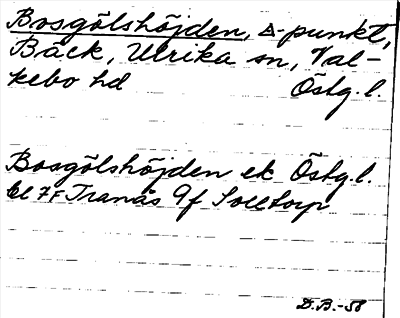 Bosgölshöjden, △-punkt,
Bäck, Ulrika sn, Val-
kebo hd Östg. l.
Bosgölshöjden ek Östg. l.
bl 7F Tranås 9f Solltorp
D.B.-58